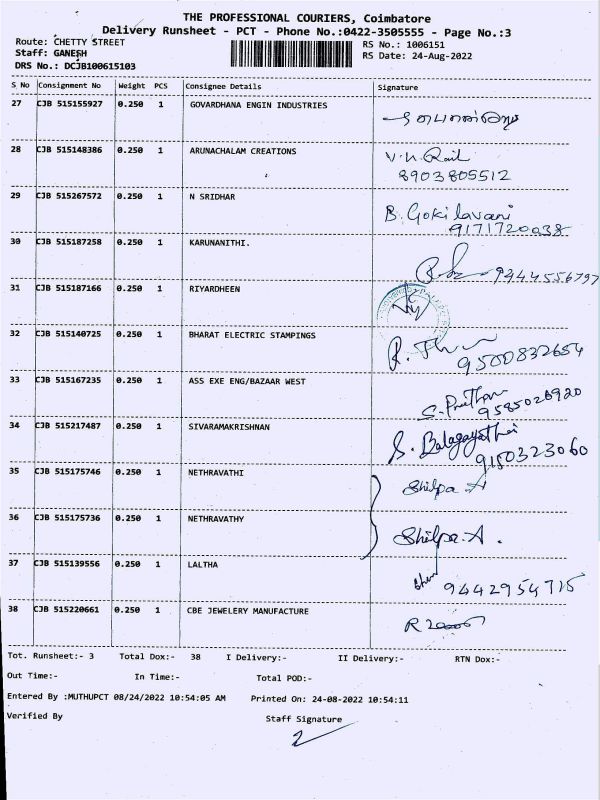 THE PROFESSIONAL COURIERS, Coimbatore
Delivery Runsheet - PCT - Phone No.:0422-3505555 - Page No.:3
Route: CHETTY STREET
RS No.: 1006151
Staff: GANESH
RS Date: 24-Aug-2022
DRS No.: DCJB100615103
S No Consignment No Weight PCS Consignee Details Signature
27 CJB 515155927 0.250 1 GOVARDHANA ENGIN INDUSTRIES
28 CJB 515148386 0.250 1 ARUNACHALAM CREATIONS
8903805512
29 CJB 515267572 0.250 1 N SRIDHAR B. Gokilavani
9171720038
30 CJB 515187258 0.250 1 KARUNANITHI.
9344556797
31 CJB 515187166 0.250 1 RIYARDHEEN
32 CJB 515140725 0.250 1 BHARAT ELECTRIC STAMPINGS
9500832654
33 CJB 515167235 0.250 1 ASS EXE ENG/BAZAAR WEST
9585026920
34 CJB 515217487 0.250 1 SIVARAMAKRISHNAN
9150323060
35 CJB 515175746 0.250 1 NETHRAVATHI Shilpa A
36 CJB 515175736 0.250 1 NETHRAVATHY Shilpa.A.
37 CJB 515139556 0.250 1 LALTHA
9442954715
38 CJB 515220661 0.250 1 CBE JEWELERY MANUFACTURE
Tot. Runsheet:- 3 Total Dox:- 38 I Delivery:- II Delivery:- RTN Dox:-
Out Time:- In Time:- Total POD:-
Entered By :MUTHUPCT 08/24/2022 10:54:05 AM Printed On: 24-08-2022 10:54:11
Verified By Staff Signature